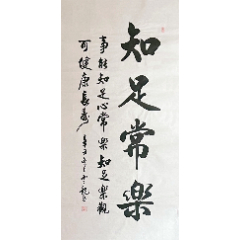 知足常樂
事能知足心常樂知足樂觀
可健康長壽